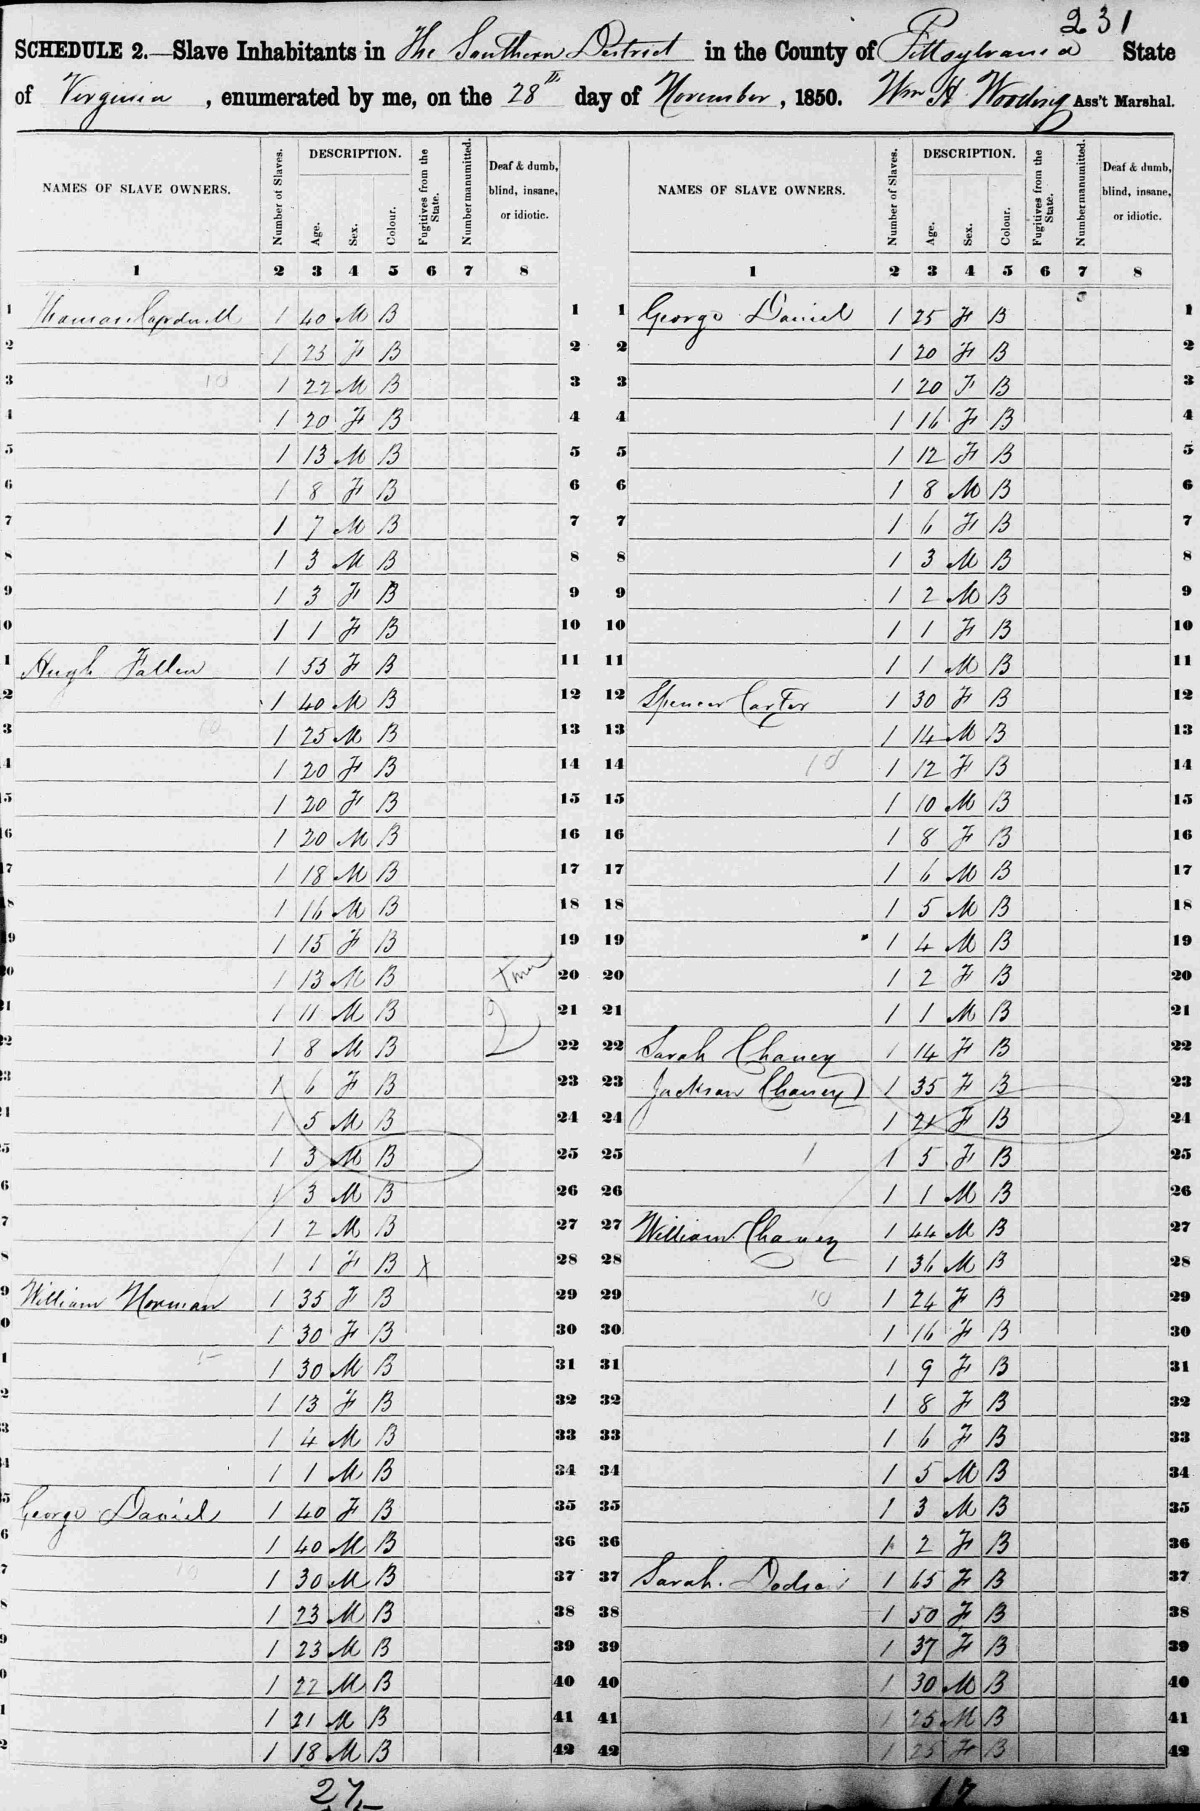 231
SCHEDULE 2.—Slave Inhabitants in The Southern District in the County of Pittsylvania State
of Virginia, enumerated by me, on the 28th day of November, 1850. Wm H Wooding Ass't Marshal.
NAMES OF SLAVE OWNERS. Number of Slaves. DESCRIPTION. Age. Sex. Colour. Fugitives from the State. Number manumitted. Deaf & dumb, blind, insane, or idiotic. NAMES OF SLAVE OWNERS. Number of Slaves. DESCRIPTION. Age. Sex. Colour. Fugitives from the State. Number manumitted. Deaf & dumb, blind, insane, or idiotic.
1 2 3 4 5 6 7 8 1 2 3 4 5 6 7 8
1 Thomas 1 40 M B 1 1 George Daniel 1 25 F B 1
2 1 23 F B 2 2 1 20 F B 2
3 10 1 22 M B 3 3 1 20 F B 3
4 1 20 F B 4 4 1 16 F B 4
5 1 13 M B 5 5 1 12 F B 5
6 1 8 F B 6 6 1 8 M B 6
7 1 7 M B 7 7 1 6 F B 7
8 1 3 M B 8 8 1 3 M B 8
9 1 3 F B 9 9 1 2 M B 9
0 1 1 F B 10 10 1 1 F B 10
1 Hugh Fallen 1 53 F B 11 11 1 1 M B 11
2 1 40 M B 12 12 Spencer Carter 1 30 F B 12
3 10 1 25 M B 13 13 1 14 M B 13
4 1 20 F B 14 14 10 1 12 F B 14
5 1 20 F B 15 15 1 10 M B 15
6 1 20 M B 16 16 1 8 F B 16
7 1 18 M B 17 17 1 6 M B 17
8 1 16 M B 18 18 1 5 M B 18
9 1 15 F B 19 19 1 4 M B 19
20 1 13 M B 20 20 1 2 F B 20
21 1 11 M B 21 21 1 1 M B 21
22 1 8 M B 2 22 22 Sarah Chaney 1 14 F B 22
23 1 6 F B 23 23 Jackson Chaney 1 35 F B 23
24 1 5 M B 24 24 1 21 F B 24
25 1 3 M B 25 25 1 1 5 F B 25
6 1 3 M B 26 26 1 1 M B 26
7 1 2 M B 27 27 William Chaney 1 44 M B 27
8 1 1 F B X 28 28 1 36 M B 28
9 William Norman 1 35 F B 29 29 10 1 24 F B 29
0 1 30 F B 30 30 1 16 F B 30
1 1 30 M B 31 31 1 9 F B 31
2 1 13 F B 32 32 1 8 F B 32
3 1 4 M B 33 33 1 6 F B 33
4 1 1 M B 34 34 1 5 M B 34
5 George Daniel 1 40 F B 35 35 1 3 M B 35
6 1 40 M B 36 36 1 2 F B 36
7 10 1 30 M B 37 37 Sarah Dodson 1 65 F B 37
8 1 23 M B 38 38 1 50 F B 38
9 1 23 M B 39 39 1 37 F B 39
0 1 22 M B 40 40 1 30 M B 40
1 1 21 M B 41 41 1 25 M B 41
2 1 18 M B 42 42 1 25 F B 42
27 17